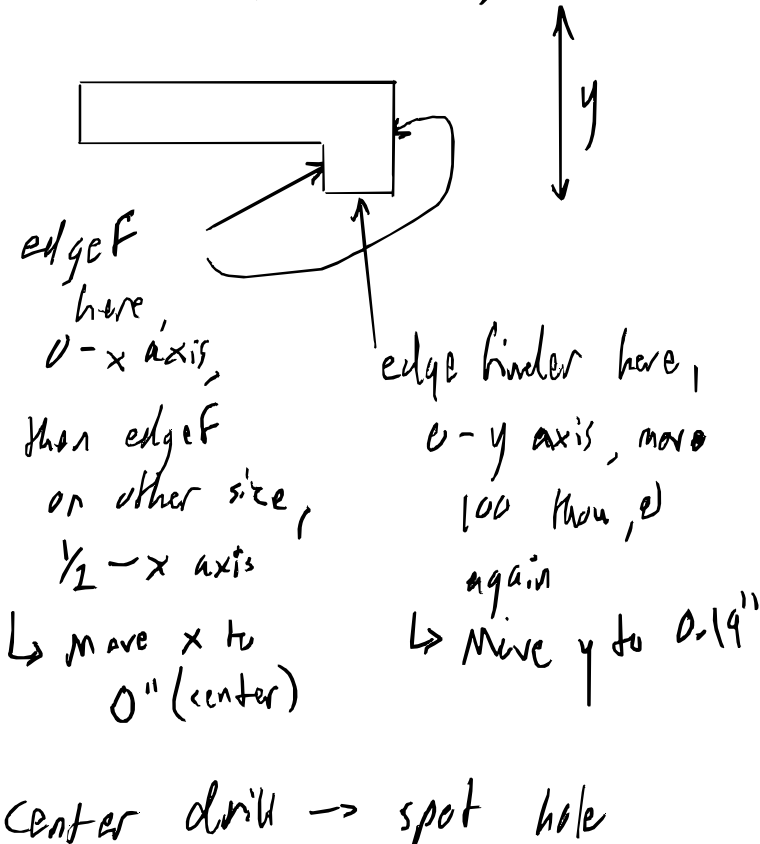 y
edgeF
here,
0-x axis,
then edgeF
on other size,
1/2 - x axis
↳ move x to
0" (center)
edge finder here,
0-y axis, move
100 thou, 0
again
↳ Move y to 0.19"
center drill -> spot hole